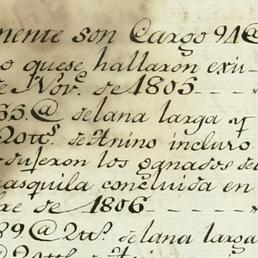 mente son Cargo 94@
o quese hallaron exu-
e Nov.e de 1805
65.@ de lana larga y
20tts. de Anino incluro
dujeron los ganados del
asquila concluida en
re de 1806
39.@ 2tts. de lana larga